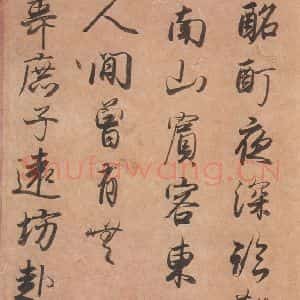 酩酊夜深
南山賓客東
人間曾有無
韋庶子遠坊赴
Shufawang.CN